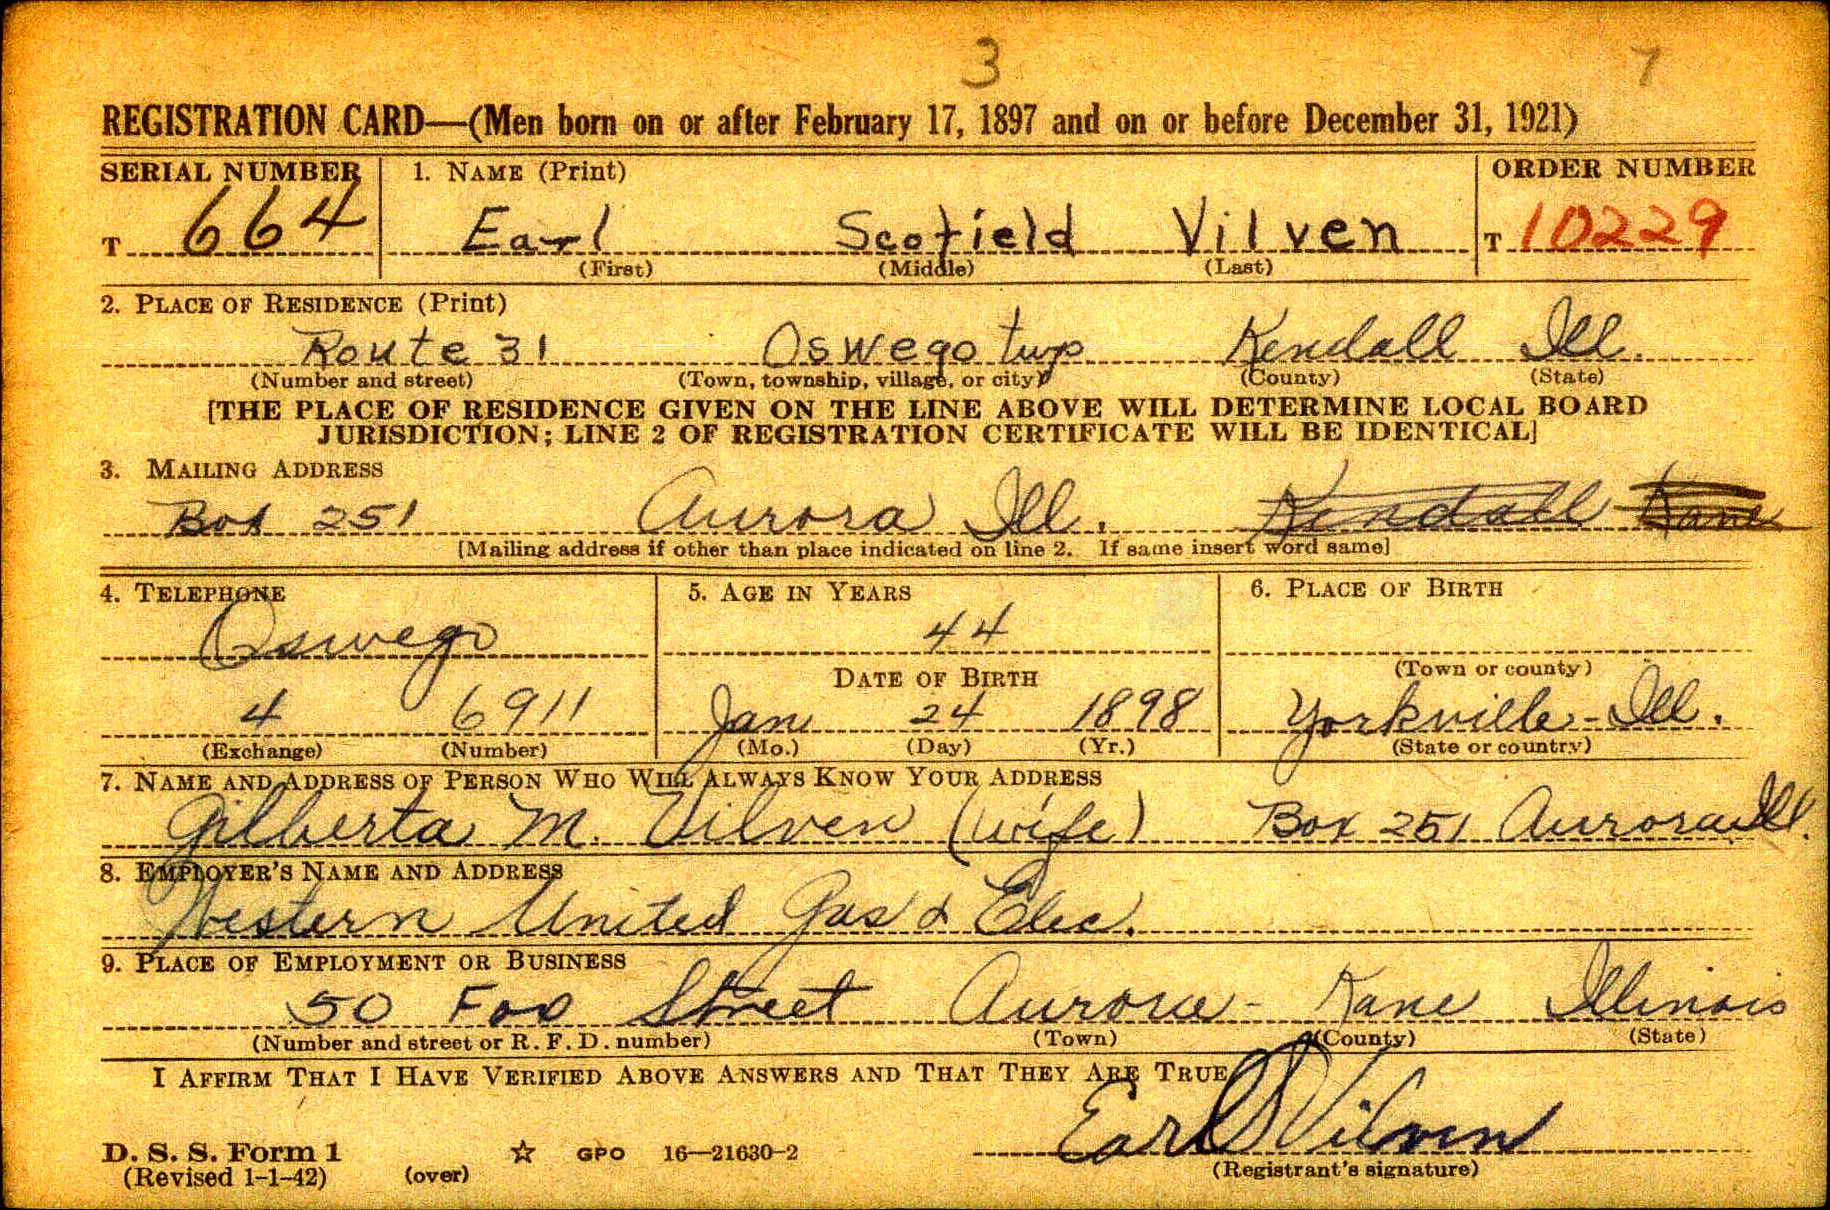 3 7
REGISTRATION CARD—(Men born on or after February 17, 1897 and on or before December 31, 1921)
SERIAL NUMBER 1. NAME (Print) ORDER NUMBER
T 664 Earl Scofield Vilven T 10229
(First) (Middle) (Last)
2. PLACE OF RESIDENCE (Print)
Route 31 Oswego twp Kendall Ill.
(Number and street) (Town, township, village, or city) (County) (State)
[THE PLACE OF RESIDENCE GIVEN ON THE LINE ABOVE WILL DETERMINE LOCAL BOARD
JURISDICTION; LINE 2 OF REGISTRATION CERTIFICATE WILL BE IDENTICAL]
3. MAILING ADDRESS
Box 251 Aurora Ill. Kendall Kane
[Mailing address if other than place indicated on line 2. If same insert word same]
4. TELEPHONE 5. AGE IN YEARS 6. PLACE OF BIRTH
Oswego 44
(Town or county)
DATE OF BIRTH
4 6911 Jan 24 1898 Yorkville - Ill.
(Exchange) (Number) (Mo.) (Day) (Yr.) (State or country)
7. NAME AND ADDRESS OF PERSON WHO WILL ALWAYS KNOW YOUR ADDRESS
Gilberta M. Vilven (wife) Box 251 Aurora Ill.
8. EMPLOYER'S NAME AND ADDRESS
Western United Gas & Elec.
9. PLACE OF EMPLOYMENT OR BUSINESS
50 Fox Street Aurora - Kane Illinois
(Number and street or R. F. D. number) (Town) (County) (State)
I AFFIRM THAT I HAVE VERIFIED ABOVE ANSWERS AND THAT THEY ARE TRUE
Earl S Vilven
D. S. S. Form 1 ☆ GPO 16—21630-2
(Revised 1-1-42) (over) (Registrant's signature)